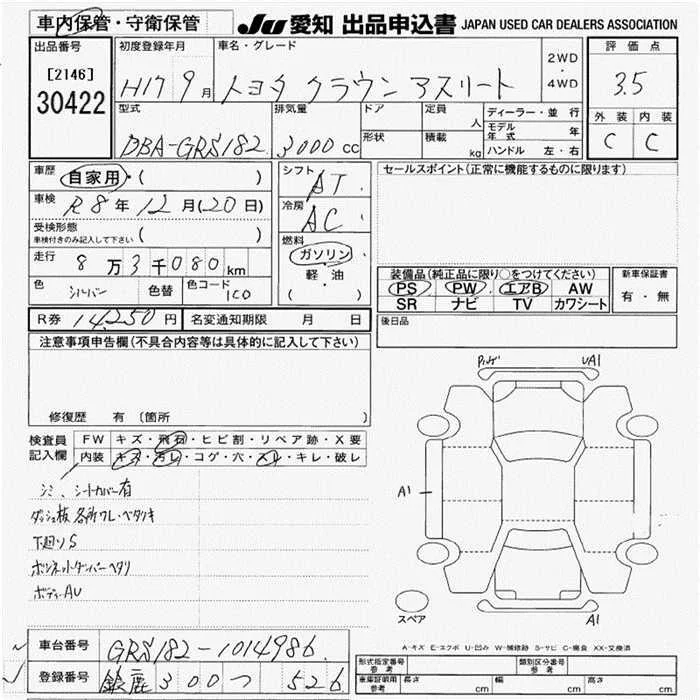 車内保管・守衛保管
JU 愛知 出品申込書 JAPAN USED CAR DEALERS ASSOCIATION
出品番号 初度登録年月 車名・グレード 評価点
[2146]
30422
H17 9月 トヨタ クラウン アスリート 2WD・4WD 3.5
型式 排気量 ドア 定員 人 ディーラー・並行 外装 内装
DBA-GRS182 3000cc 形状 積載 kg モデル年式 年 C C
ハンドル 左・右
車歴 自家用・( ) シフト AT セールスポイント(正常に機能するものに限ります)
車検 R8年12月(20日) 冷房 AC
受検形態
車検付きのみ記入して下さい ( )
燃料 ガソリン
走行 8万3千080km 軽・油
( )
装備品(純正品に限り○をつけてください) 新車保証書
色 シルバー 色替 色コード 1C0
PS PW エアB AW 有・無
SR ナビ TV カワシート
R券 14,250円 名変通知期限 月 日 後日品
注意事項申告欄(不具合内容等は具体的に記入して下さい)
UA1
修復歴 有 (箇所 )
検査員 FW キズ・飛石・ヒビ割・リペア跡・X要
記入欄 内装 キズ・汚レ・コゲ・穴・スレ・キレ・破レ
シミ、シートカバー有
A1
ダッシュ板 各所ワレ・ベタツキ
下廻りS
ボンネットダンパーヘタリ
ボディーAU
スペア
A1
A-キズ E-エクボ U-凹み W-補修跡 S-サビ C-腐食 XX-交換済
車台番号 GRS182-1014986
登録番号 鈴鹿 300 つ 526
形式指定番号 参考 類別区分番号 参考
車庫証明用 参考 長さ cm 幅 cm 高さ cm